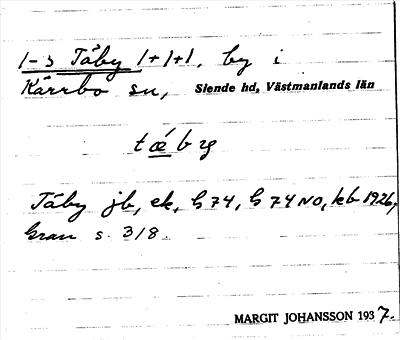 1-3 Täby 1+1+1, by i
Kärrbo sn, Siende hd, Västmanlands län
Täby jb, ek, G 74, G 74 NO, kb 1926,
Gran s. 318.
MARGIT JOHANSSON 1937.